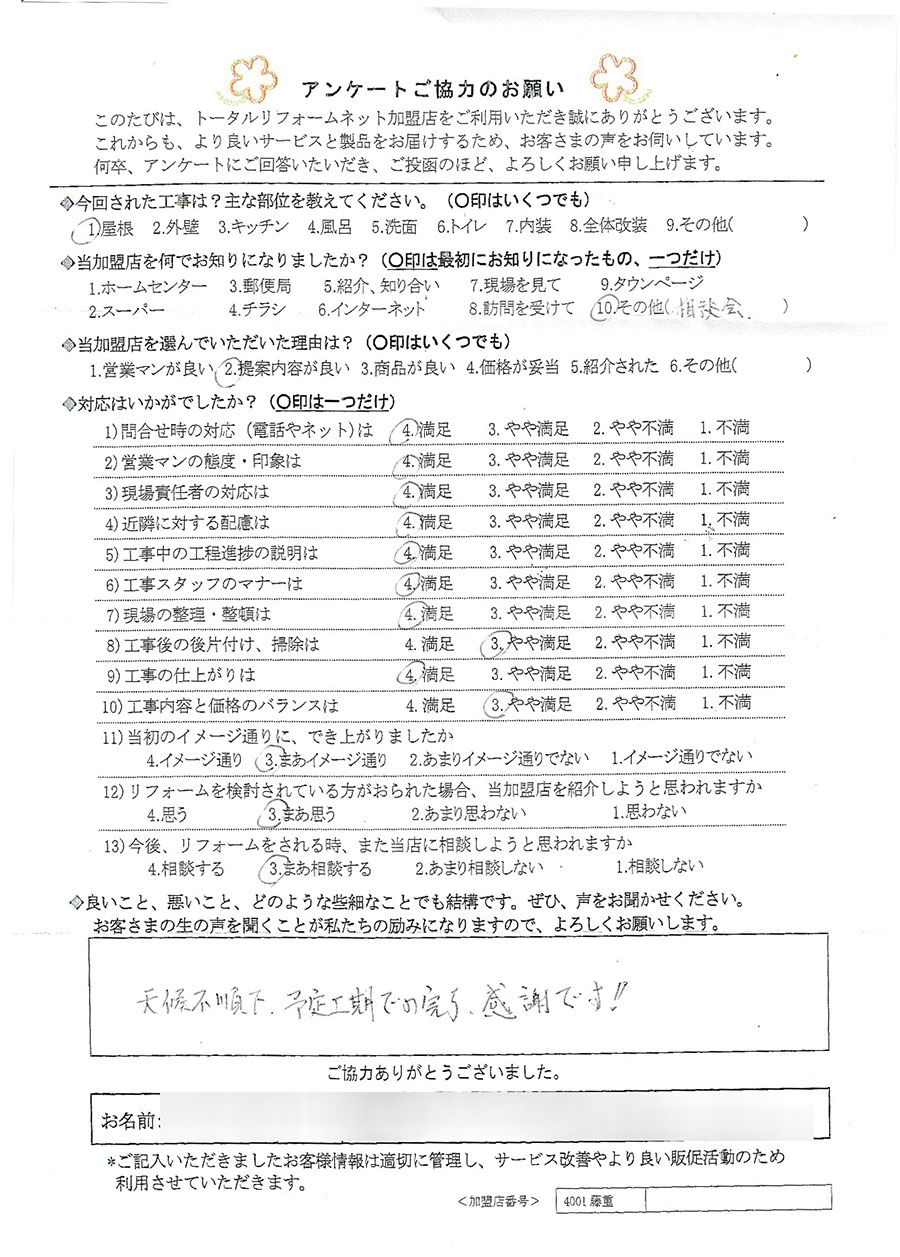 アンケートご協力のお願い
このたびは、トータルリフォームネット加盟店をご利用いただき誠にありがとうございます。
これからも、より良いサービスと製品をお届けするため、お客さまの声をお伺いしています。
何卒、アンケートにご回答いたいだき、ご投函のほど、よろしくお願い申し上げます。
◈今回された工事は？主な部位を教えてください。（〇印はいくつでも）
1)屋根 2.外壁 3.キッチン 4.風呂 5.洗面 6.トイレ 7.内装 8.全体改装 9.その他( )
◈当加盟店を何でお知りになりましたか？（〇印は最初にお知りになったもの、一つだけ）
1.ホームセンター 3.郵便局 5.紹介、知り合い 7.現場を見て 9.タウンページ
2.スーパー 4.チラシ 6.インターネット 8.訪問を受けて 10.その他( 相談会. )
◈当加盟店を選んでいただいた理由は？（〇印はいくつでも）
1.営業マンが良い 2.提案内容が良い 3.商品が良い 4.価格が妥当 5.紹介された 6.その他( )
◈対応はいかがでしたか？（〇印は一つだけ）
1)問合せ時の対応（電話やネット)は 4.満足 3.やや満足 2.やや不満 1.不満
2)営業マンの態度・印象は 4.満足 3.やや満足 2.やや不満 1.不満
3)現場責任者の対応は 4.満足 3.やや満足 2.やや不満 1.不満
4)近隣に対する配慮は 4.満足 3.やや満足 2.やや不満 1.不満
5)工事中の工程進捗の説明は 4.満足 3.やや満足 2.やや不満 1.不満
6)工事スタッフのマナーは 4.満足 3.やや満足 2.やや不満 1.不満
7)現場の整理・整頓は 4.満足 3.やや満足 2.やや不満 1.不満
8)工事後の後片付け、掃除は 4.満足 3.やや満足 2.やや不満 1.不満
9)工事の仕上がりは 4.満足 3.やや満足 2.やや不満 1.不満
10)工事内容と価格のバランスは 4.満足 3.やや満足 2.やや不満 1.不満
11)当初のイメージ通りに、でき上がりましたか
4.イメージ通り 3.まあイメージ通り 2.あまりイメージ通りでない 1.イメージ通りでない
12)リフォームを検討されている方がおられた場合、当加盟店を紹介しようと思われますか
4.思う 3.まあ思う 2.あまり思わない 1.思わない
13)今後、リフォームをされる時、また当店に相談しようと思われますか
4.相談する 3.まあ相談する 2.あまり相談しない 1.相談しない
◈良いこと、悪いこと、どのような些細なことでも結構です。ぜひ、声をお聞かせください。
お客さまの生の声を聞くことが私たちの励みになりますので、よろしくお願いします。
天候不順下、予定工期での完了、感謝です!!
ご協力ありがとうございました。
お名前:
*ご記入いただきましたお客様情報は適切に管理し、サービス改善やより良い販促活動のため
利用させていただきます。
＜加盟店番号＞ 4001藤重